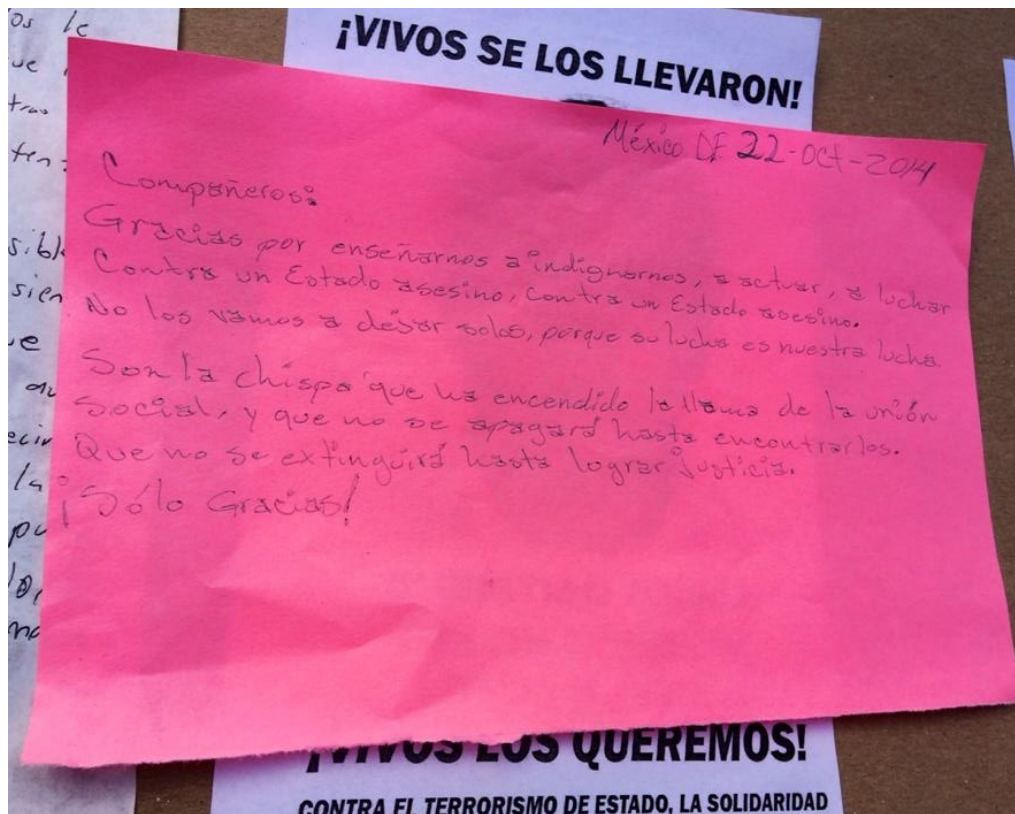 ¡VIVOS SE LOS LLEVARON!
México DF 22-Oct-2014
Compañeros:
Gracias por enseñarnos a indignarnos, a actuar, a luchar
Contra un Estado asesino, contra un Estado asesino.
No los vamos a dejar solos, porque su lucha es nuestra lucha.
Son la chispa que ha encendido la llama de la unión
Social, y que no se apagará hasta encontrarlos.
Que no se extinguirá hasta lograr justicia.
¡Sólo Gracias!
¡VIVOS LOS QUEREMOS!
CONTRA EL TERRORISMO DE ESTADO, LA SOLIDARIDAD